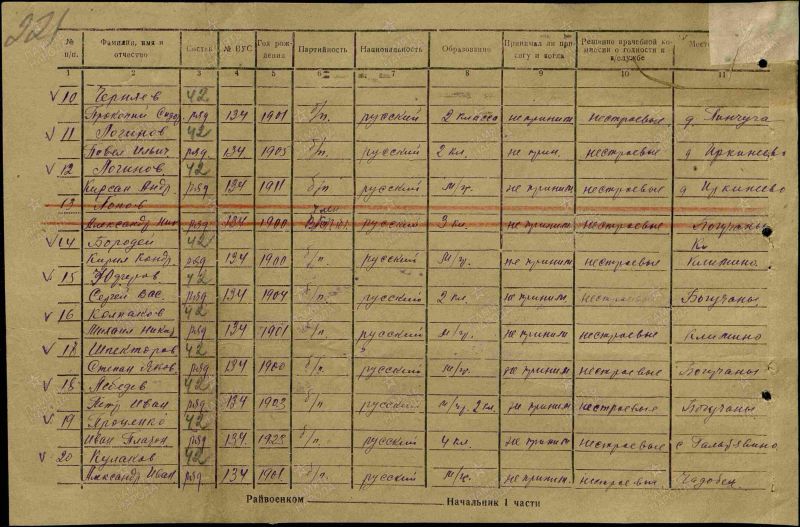 221
№ п/п. Фамилия, имя и отчество Состав № ВУС Год рождения Партийность Национальность Образование Принимал ли присягу и когда Решение врачебной комиссии о годности к в/службе Мест
1 2 3 4 5 6 7 8 9 10 11
10 Черняев 42
Прокопий ряд 134 1901 б/п. русский 2 класса не приним нестроевые д. Пинчуга
11 Логинов 42
Павел Ильич ряд. 134 1905 б/п. русский 2 кл. не прим. нестроевые д Иркинеево
12 Логинов 42
Кирсан Андр ряд 134 1911 б/п русский М/гр. не приним нестроевые д Иркинеево
13 Попов
Александр Ник ряд. 134 1900 русский 3 кл. не приним нестроевые Богучаны
14 Бородей 42 Кл
Кирил Конд ряд 134 1900 б/п. русский М/гр. не приним нестроевые Климино
15 42
Сергей Вас. ряд 134 1904 б/п русский 2 кл. не приним. нестроевые Богучаны
16 Колпаков 42
Михаил Никол ряд 134 1901 б/п русский М/гр. не приним нестроевые Климино
18 Шпекторов 42
Степан Яков. ряд. 134 1900 б/п. русский м/гр. не приним. нестроевые Богучаны
18 Лебедев 42
Пётр Иван ряд 134 1903 б/п русский м/гр. 2 кл. не приним нестроевые Богучаны
19 Ярошенко 42
Иван Платон ряд. 134 1923 б/п. русский 4 кл. не приним нестроевые с
20 Кулаков 42
Александр Иван ряд. 134 1901 б/п. русский м/гр. не приним. нестроевые Чадобец
Райвоенком Начальник 1 части